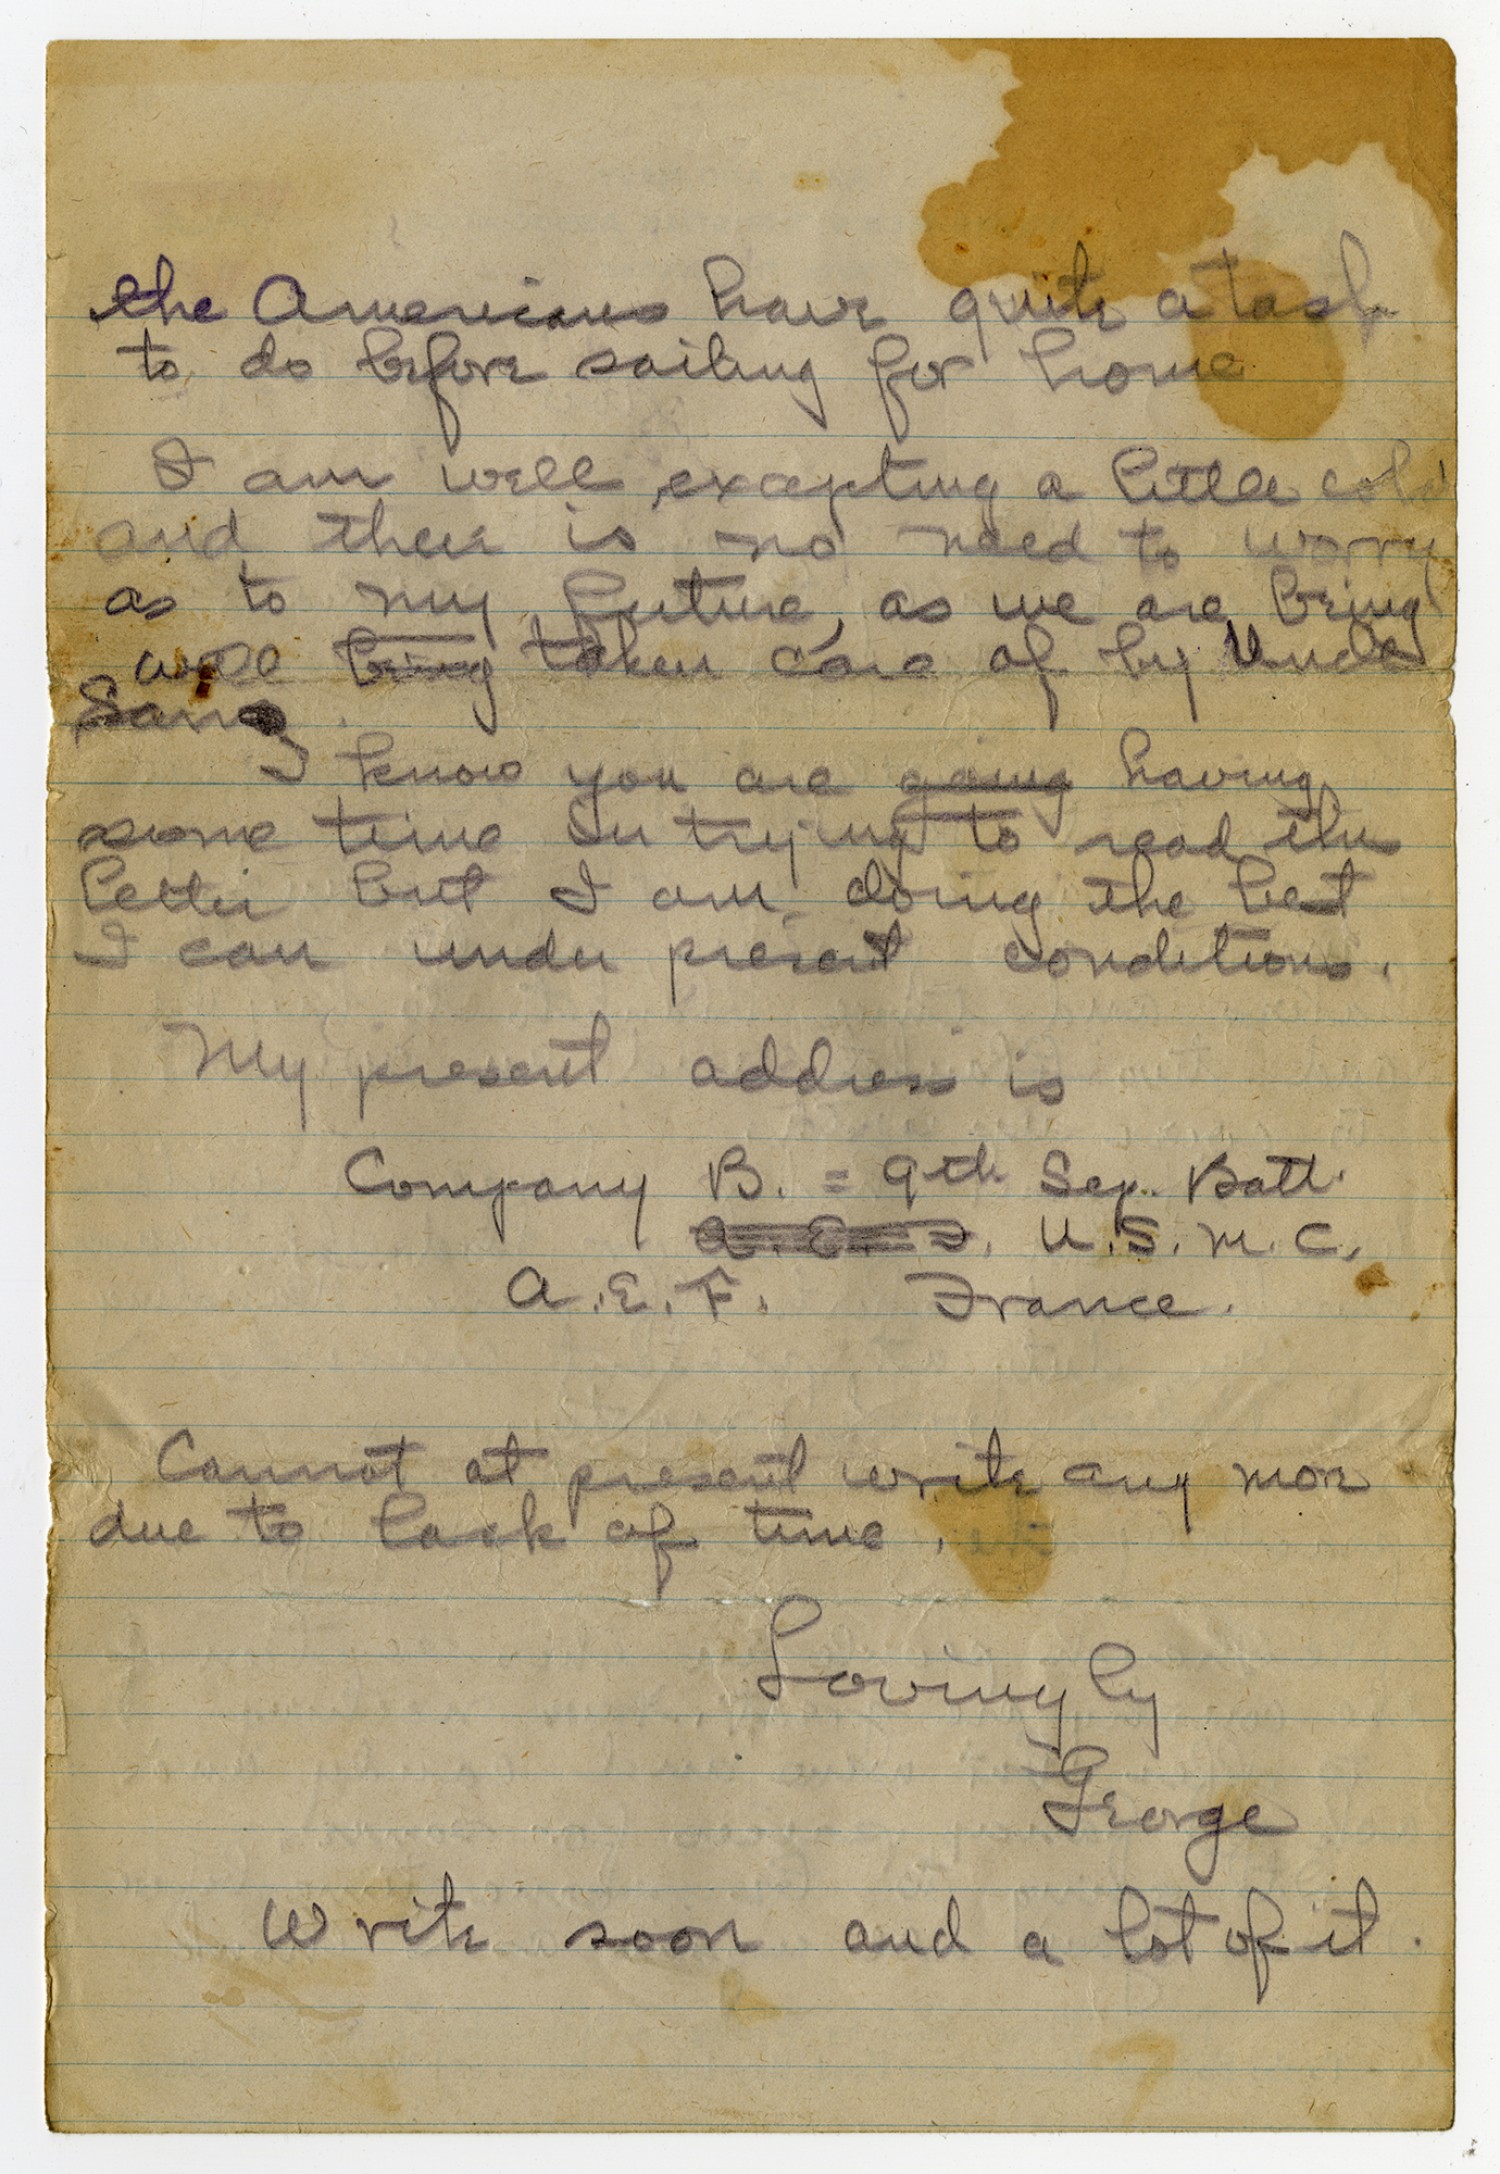 the Americans have quite a task
to do before sailing for home
I am well excepting a little cold
and there is no need to worry
as to my future, as we are being
well being taken care of by Uncle
Sam
I know you are going having
some time in trying to read this
letter but I am doing the best
I can under present conditions.
My present address is
Company B. = 9th Sep. Batt.
A. E. F. U.S.M.C.
A.E.F. France.
Cannot at present write any more
due to lack of time.
Lovingly
George
Write soon and a lot of it.